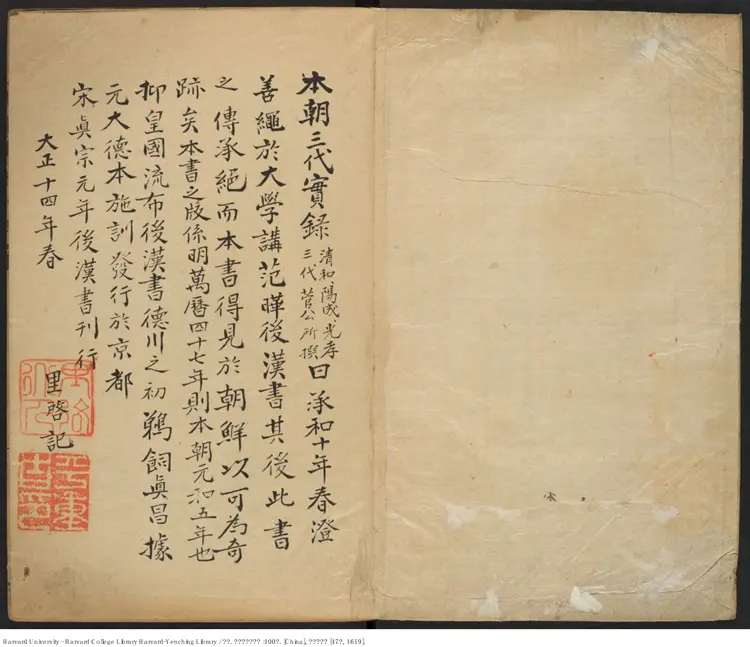 本朝三代實録 清和陽成光孝 三代菅公所撰 曰承和十年春澄
善繩於大學講范曄後漢書其後此書
之傳承絕而本書得見於朝鮮以可為奇
跡矣本書之版係明萬曆四十七年則本朝元和五年也
抑皇國流布後漢書德川之初鵜飼眞昌據
元大德本施訓發行於京都
宋眞宗元年後漢書刊行
大正十四年春
里啓記
Harvard University - Harvard College Library Harvard-Yenching Library / ??. ??????? :100?. [China], ????? [47?, 1619].